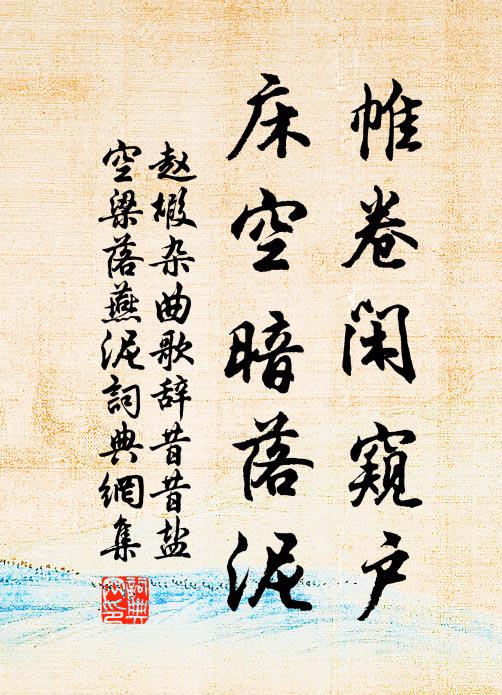 帷卷闲窥户
床空暗落泥
赵嘏杂曲歌辞昔昔盐
空梁落燕泥词典網集